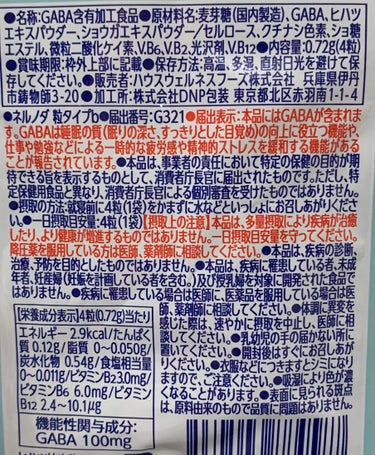 ●名称:GABA含有加工食品●原材料名:麦芽糖(国内製造)、GABA、ヒハツ
エキスパウダー、ショウガエキスパウダー/セルロース、クチナシ色素、ショ糖
エステル、微粒二酸化ケイ素、V.B6、V.B2、光沢剤、V.B12●内容量:0.72g(4粒)
●賞味期限:枠外上部に記載●保存方法:高温、多湿、直射日光を避けて保存
してください。●販売者:ハウスウェルネスフーズ株式会社 兵庫県伊丹
市鋳物師3-20●加工所:株式会社DNP包装 東京都北区赤羽南1-1-4
●ネルノダ 粒タイプb●届出番号:G321●届出表示:本品にはGABAが含まれま
す。GABAは睡眠の質(眠りの深さ、すっきりとした目覚め)の向上に役立つ機能や、
仕事や勉強などによる一時的な疲労感や精神的ストレスを緩和する機能がある
ことが報告されています。●本品は、事業者の責任において特定の保健の目的が期
待できる旨を表示するものとして、消費者庁長官に届出されたものです。ただし、特
定保健用食品と異なり、消費者庁長官による個別審査を受けたものではありません。
●摂取の方法:就寝前に4粒(1袋)をかまずに水などといっしょにお召しあがりくださ
い。●一日摂取目安量:4粒(1袋)【摂取上の注意】本品は、多量摂取により疾病が治癒し
たり、より健康が増進するものではありません。一日摂取目安量を守ってください。
降圧薬を服用している方は医師、薬剤師に相談してください。●本品は、疾病の診断、
治療、予防を目的としたものではありません。●本品は、疾病に罹患している者、未成
年者、妊産婦(妊娠を計画している者を含む。)及び授乳婦を対象に開発された食品で
はありません。●疾病に罹患している場合は医師に、医薬品を服用している場合は医
師、薬剤師に相談してください。●体調に異変を
感じた際は、速やかに摂取を中止し、医師に相
談してください。●乳幼児の手の届かない所に
置いてください。●開封後はすぐにお召しあが
りください。●衣服などにつきますとシミになり
ますので、ご注意ください。●吸湿により色が濃
くなることがあります。●表面に見られる斑点
は、原料由来のもので品質に問題はありません。
【栄養成分表示】4粒(0.72g)当たり
エネルギー 2.9kcal/たんぱく
質 0.12g/脂質 0~0.050g/
炭水化物 0.54g/食塩相当量
0~0.011g/ビタミンB2 3.0mg/
ビタミンB6 6.0mg/ビタミン
B12 2.4~10.1μg
機能性関与成分:
GABA 100mg